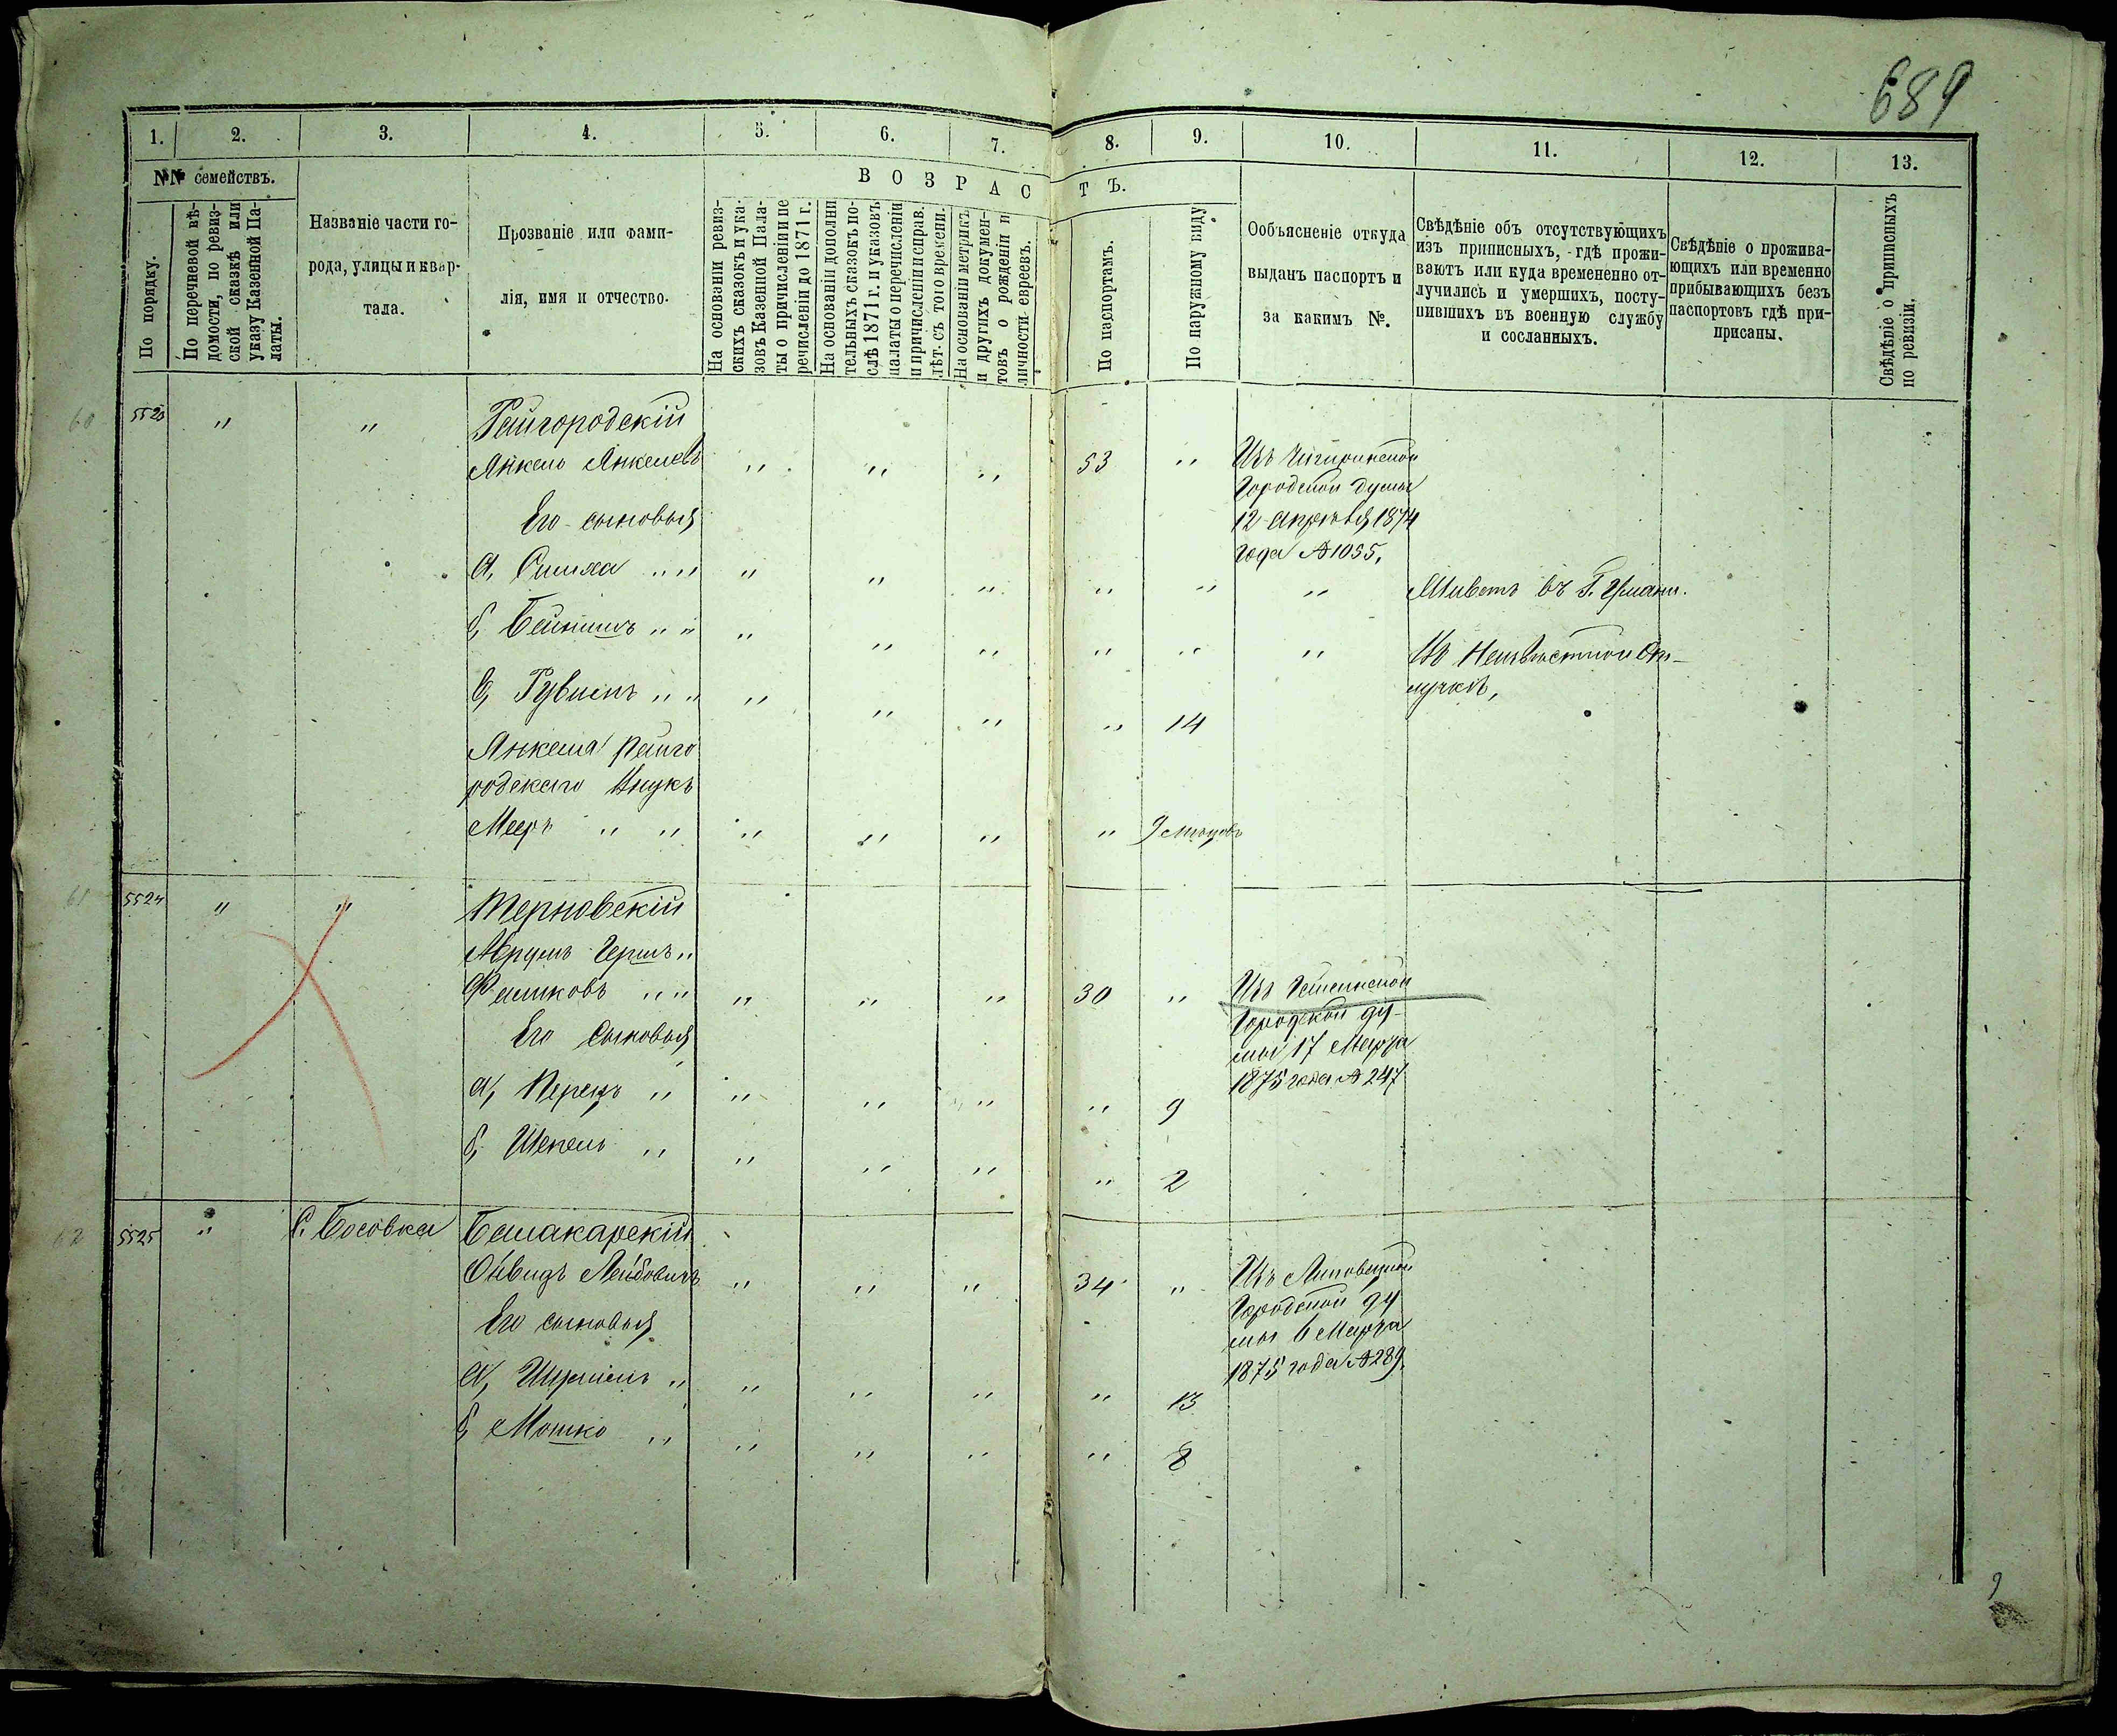 689
1. 2. 3. 4. 5. 6. 7. 8. 9. 10. 11. 12. 13.
№№ семействъ.
По порядку.
По перечневой вѣ-
домости, по ревиз-
ской сказкѣ или
указу Казенной Па-
латы.
Названіе части го-
рода, улицы и квар-
тала.
Прозваніе или фами-
лія, имя и отчество.
ВОЗРАСТЪ.
На основаніи ревиз-
скихъ сказокъ и ука-
зовъ Казенной Пала-
ты о причисленіи и пе
речисленіи до 1871 г.
На основаніи дополни
тельныхъ сказокъ по-
слѣ 1871 г. и указовъ
палаты о перечисленіи
и причисленіи и справ.
лѣт. съ того времени.
На основаніи метрикъ
и другихъ докумен-
товъ о рожденіи и
личности евреевъ.
По паспортамъ.
По наружному виду
Ообъясненіе откуда
выданъ паспортъ и
за какимъ №.
Свѣдѣніе объ отсутствующихъ
изъ приписныхъ, гдѣ прожи-
ваютъ или куда времененно от-
лучились и умершихъ, посту-
пившихъ въ военную службу
и сосланныхъ.
Свѣдѣніе о прожива-
ющихъ или временно
прибывающихъ безъ
паспортовъ гдѣ при-
присаны.
Свѣдѣніе о приписныхъ
по ревизіи.
60 5523 " " Рейгородскій
Янкель Янкелевъ " " " 53 " Изъ Чигиринской
Городской Думы
Его сыновья
12 Апрѣля 1874
года №1055.
а, Симха " " " " " " " " Живетъ въ Г. Умани.
б, Бейнишъ " " " " " " " " Въ Неизвѣстной От-
лучкѣ,
в, Рувинъ " " " " " " 14
Янкеля Рейго
родскаго Внукъ
Мееръ " " " " " " 9 мѣсяцовъ
61 5524 " " Терновскій
Аврумъ Гершъ "
Фаликовъ " " " " " 30 " Изъ
Городской ду-
Его Сыновья
мы 17 Марта
1875 года № 247
а, Перецъ " " " " " 9
б, " " " " " 2
62 5525 " С. Босовка Балакарскій
Овидъ Лейбовичъ " " " 34 " Изъ Липовецкой
Городской Ду
Его сыновья
мы 6 Марта
1875 года № 289.
а, " " " " " 13
б, Мошко " " " " " 8